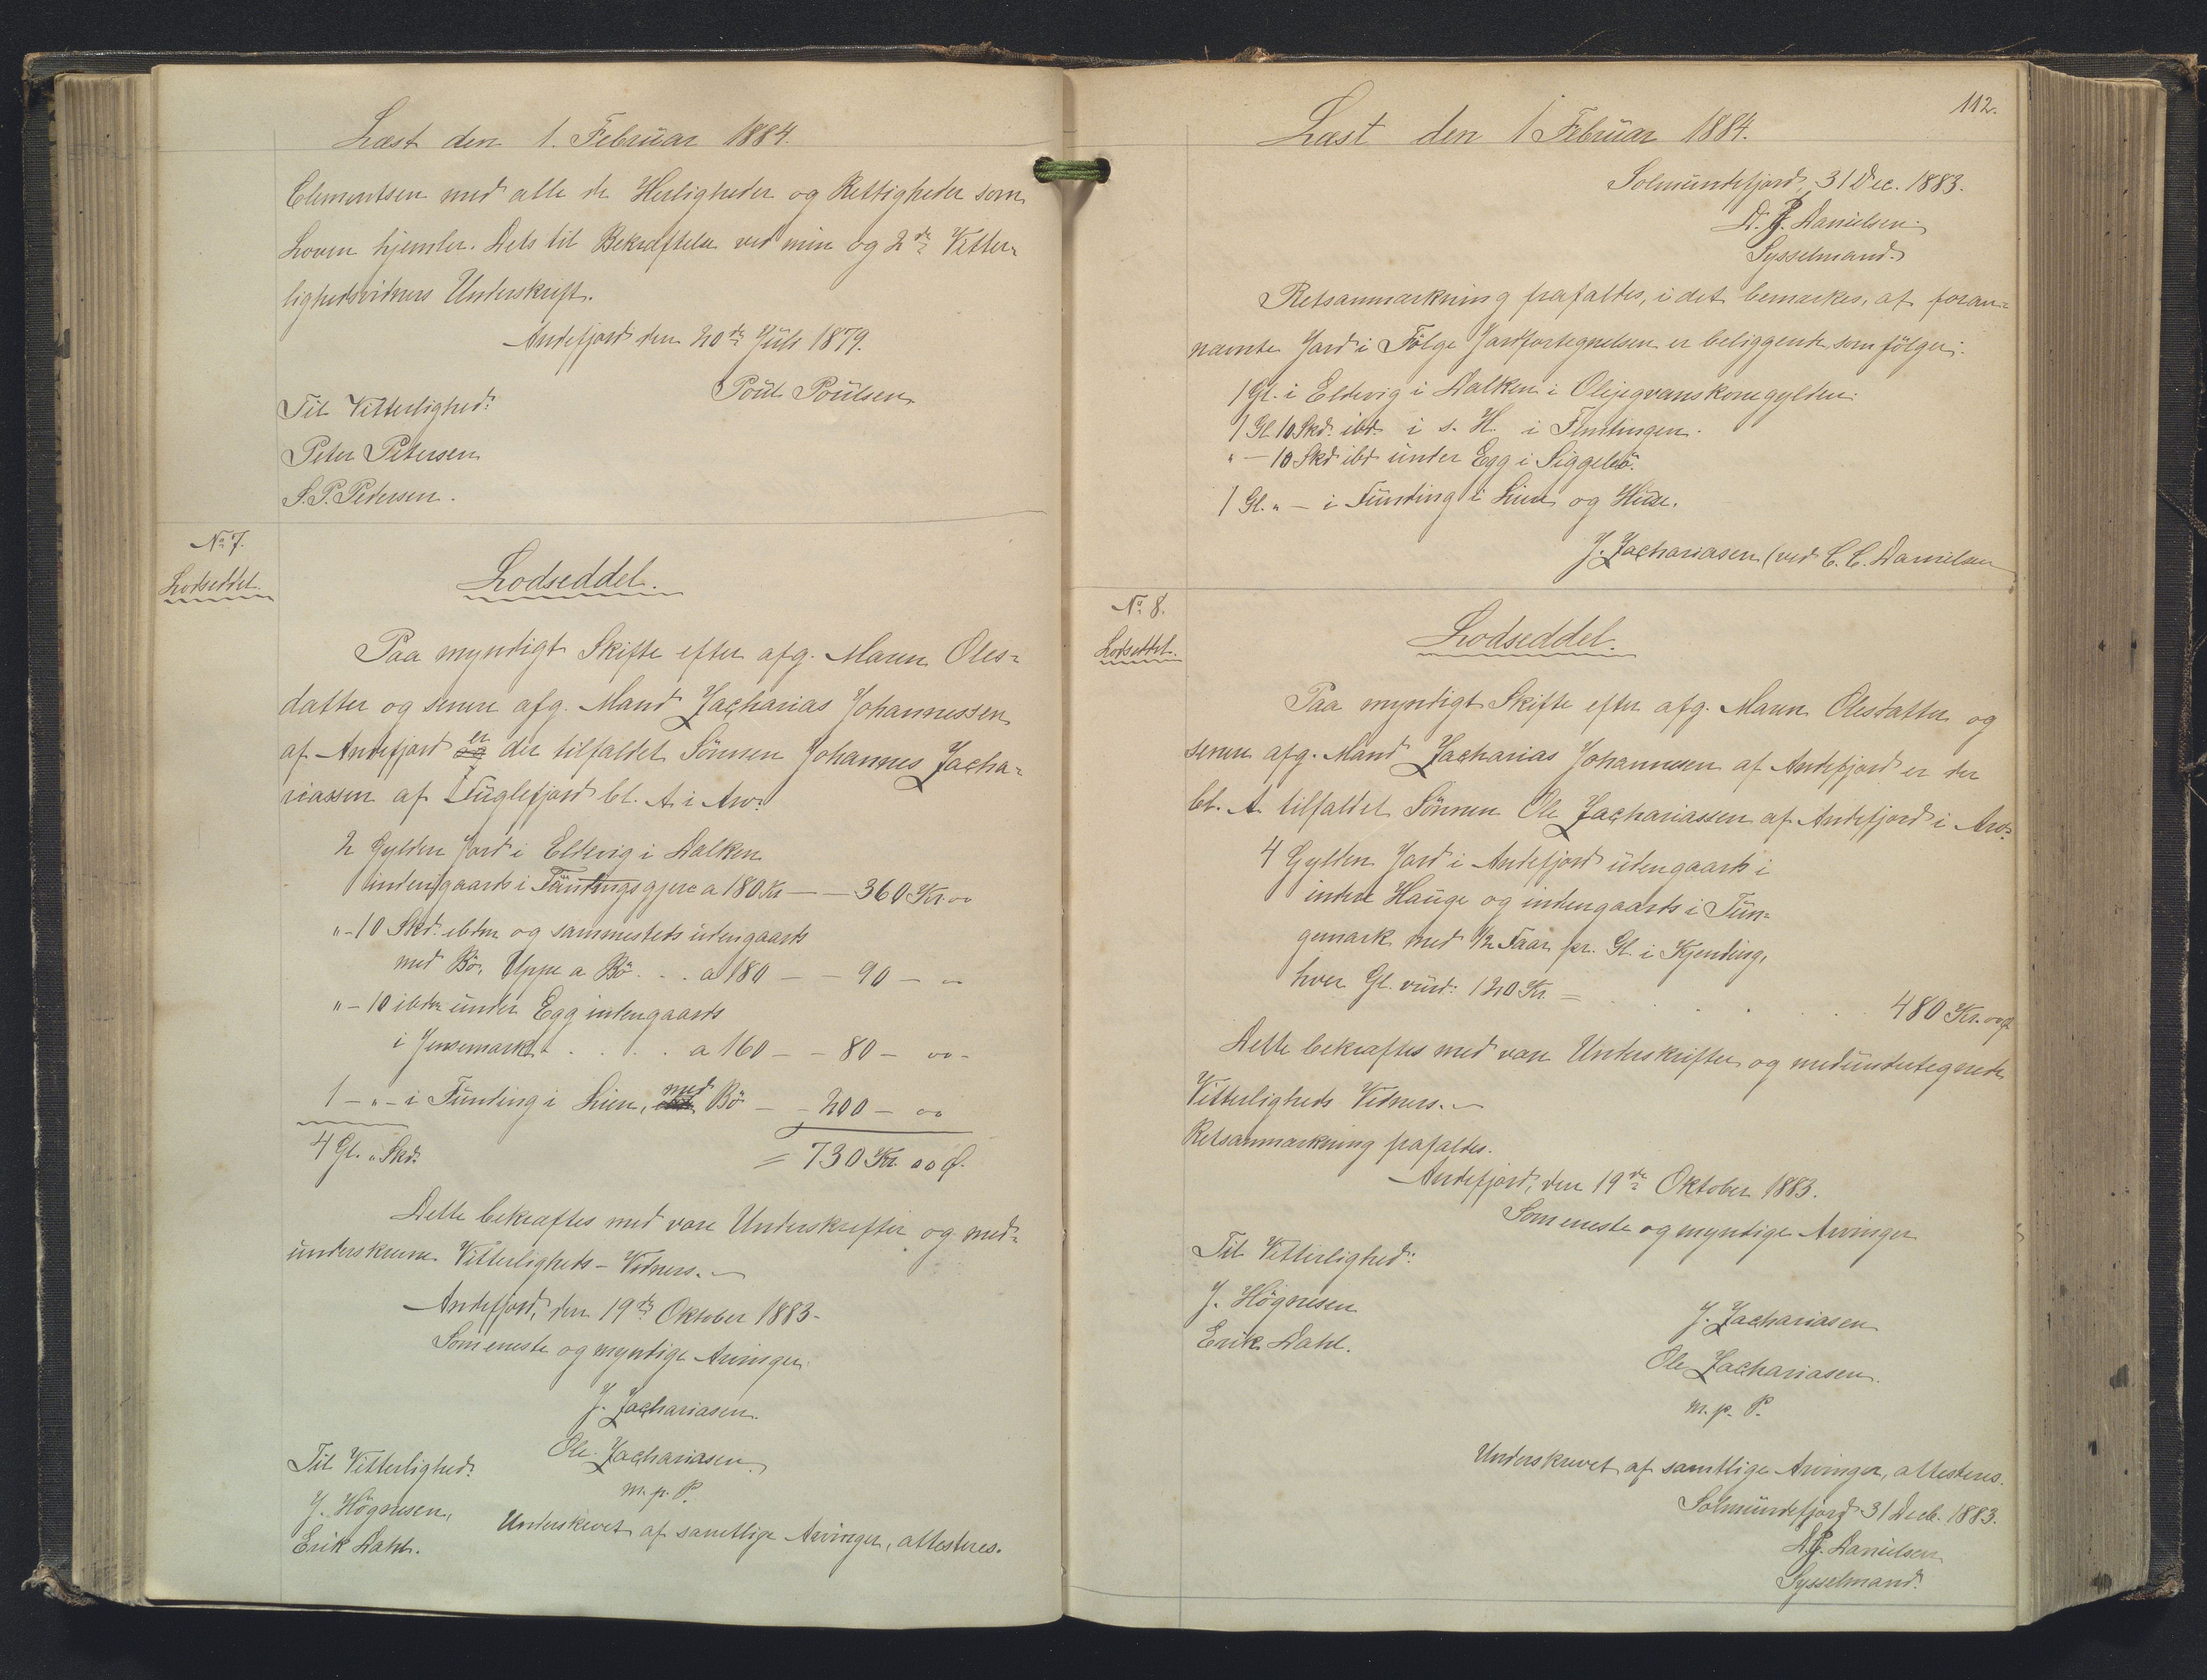 Læst den 1. Februar 1884.
Clementsen med alle de Herligheder og Rettigheder som
Loven hjemler. Dets til Bekræftelse ved min og 2de Vitter-
lighedsvidners Underskrift.
Andefjord den 20de Juli 1879.
Poul Poulsen
Til Vitterlighed:
Peter Petersen
S. P. Pedersen.
No 7.
Lodseddel.
Lodseddel.
Paa myndigt Skifte efter afg. Maren Oles-
datter og senere afg. Mand Zacharias Johannessen
af Andefjord er der tilfaldet Sønnen Johannes Zacha-
riassen af Fuglefjord bl. A. i Arv:
2 Gylden Jord i Eldevig i Dalken
indengaards i Fäntingsgjere a 180 Kr — — 360 Kr. 00
" - 10 Skd. ibdm og sammesteds udengaards
med Bö, Uppe a Bö . . a 180 — — 90 — 00
" - 10 ibdm under Egg indengaards
i Jensemark . . . . a 160 — — 80 — 00 -
1 - " - i Funding i Lien, med Bö — — 200 — 00
4 Gl. " Skd. = 730 Kr 00 Ø.
Dette bekræftes med vore Underskrifter og med-
underskrevne Vitterligheds-Vidners.
Andefjord, den 19de Oktober 1883.
Som eneste og myndige Arvinger
J. Zachariasen.
Ole Zachariasen
m. p. P.
Til Vitterlighed:
J. Högnesen,
Erik Dahl.
Underskrevet af samtlige Arvinger, attesteres.
112.
Læst den 1 Februar 1884.
Solmundefjord, 31 Dec. 1883.
D. P. Danielsen
Sysselmand.
Retsanmærkning frafaldes, idet bemærkes, at foran-
nævnte Jord i Følge Jordfortegnelsen er beliggende som følger:
1 Gl. i Eldevig i Dalken i Olejegvanskonegylden.
1 Gl. 10 Skd. ibd. i s. H. i
" — 10 Skd ibd under Egg i Siggeleö.
1 Gl. " — i Funding i Lien og Huse.
J. Zachariasen (ved C. C. Danielsen
No 8.
Lodseddel.
Lodseddel.
Paa myndigt Skifte efter afg. Maren Olesdatter og
senere afg. Mand Zacharias Johannesen af Andefjord er der
bl. A. tilfaldet Sønnen Ole Zachariassen af Andefjord i Arv:
4 Gylden Jord i Andefjord udengaards i
indere Hauge og indengaards i Tün-
gemark med ½ Faar pr. Gl. i Kjending,
hver Gl. vurd: 120 Kr. = . . . . 480 Kr. 00 Ø
Dette bekræftes med vore Underskrifter og medundertegnede
Vitterligheds Vidners.
Retsanmærkning frafaldes.
Andefjord, den 19de Oktober 1883.
Som eneste og myndige Arvinger
Til Vitterlighed:
J. Högnesen
Erik Dahl.
J. Zachariasen
Ole Zachariasen.
m. p. P.
Underskrevet af samtlige Arvinger, attesteres.
Solmundefjord 31 Decb. 1883.
D. P. Danielsen
Sysselmand.